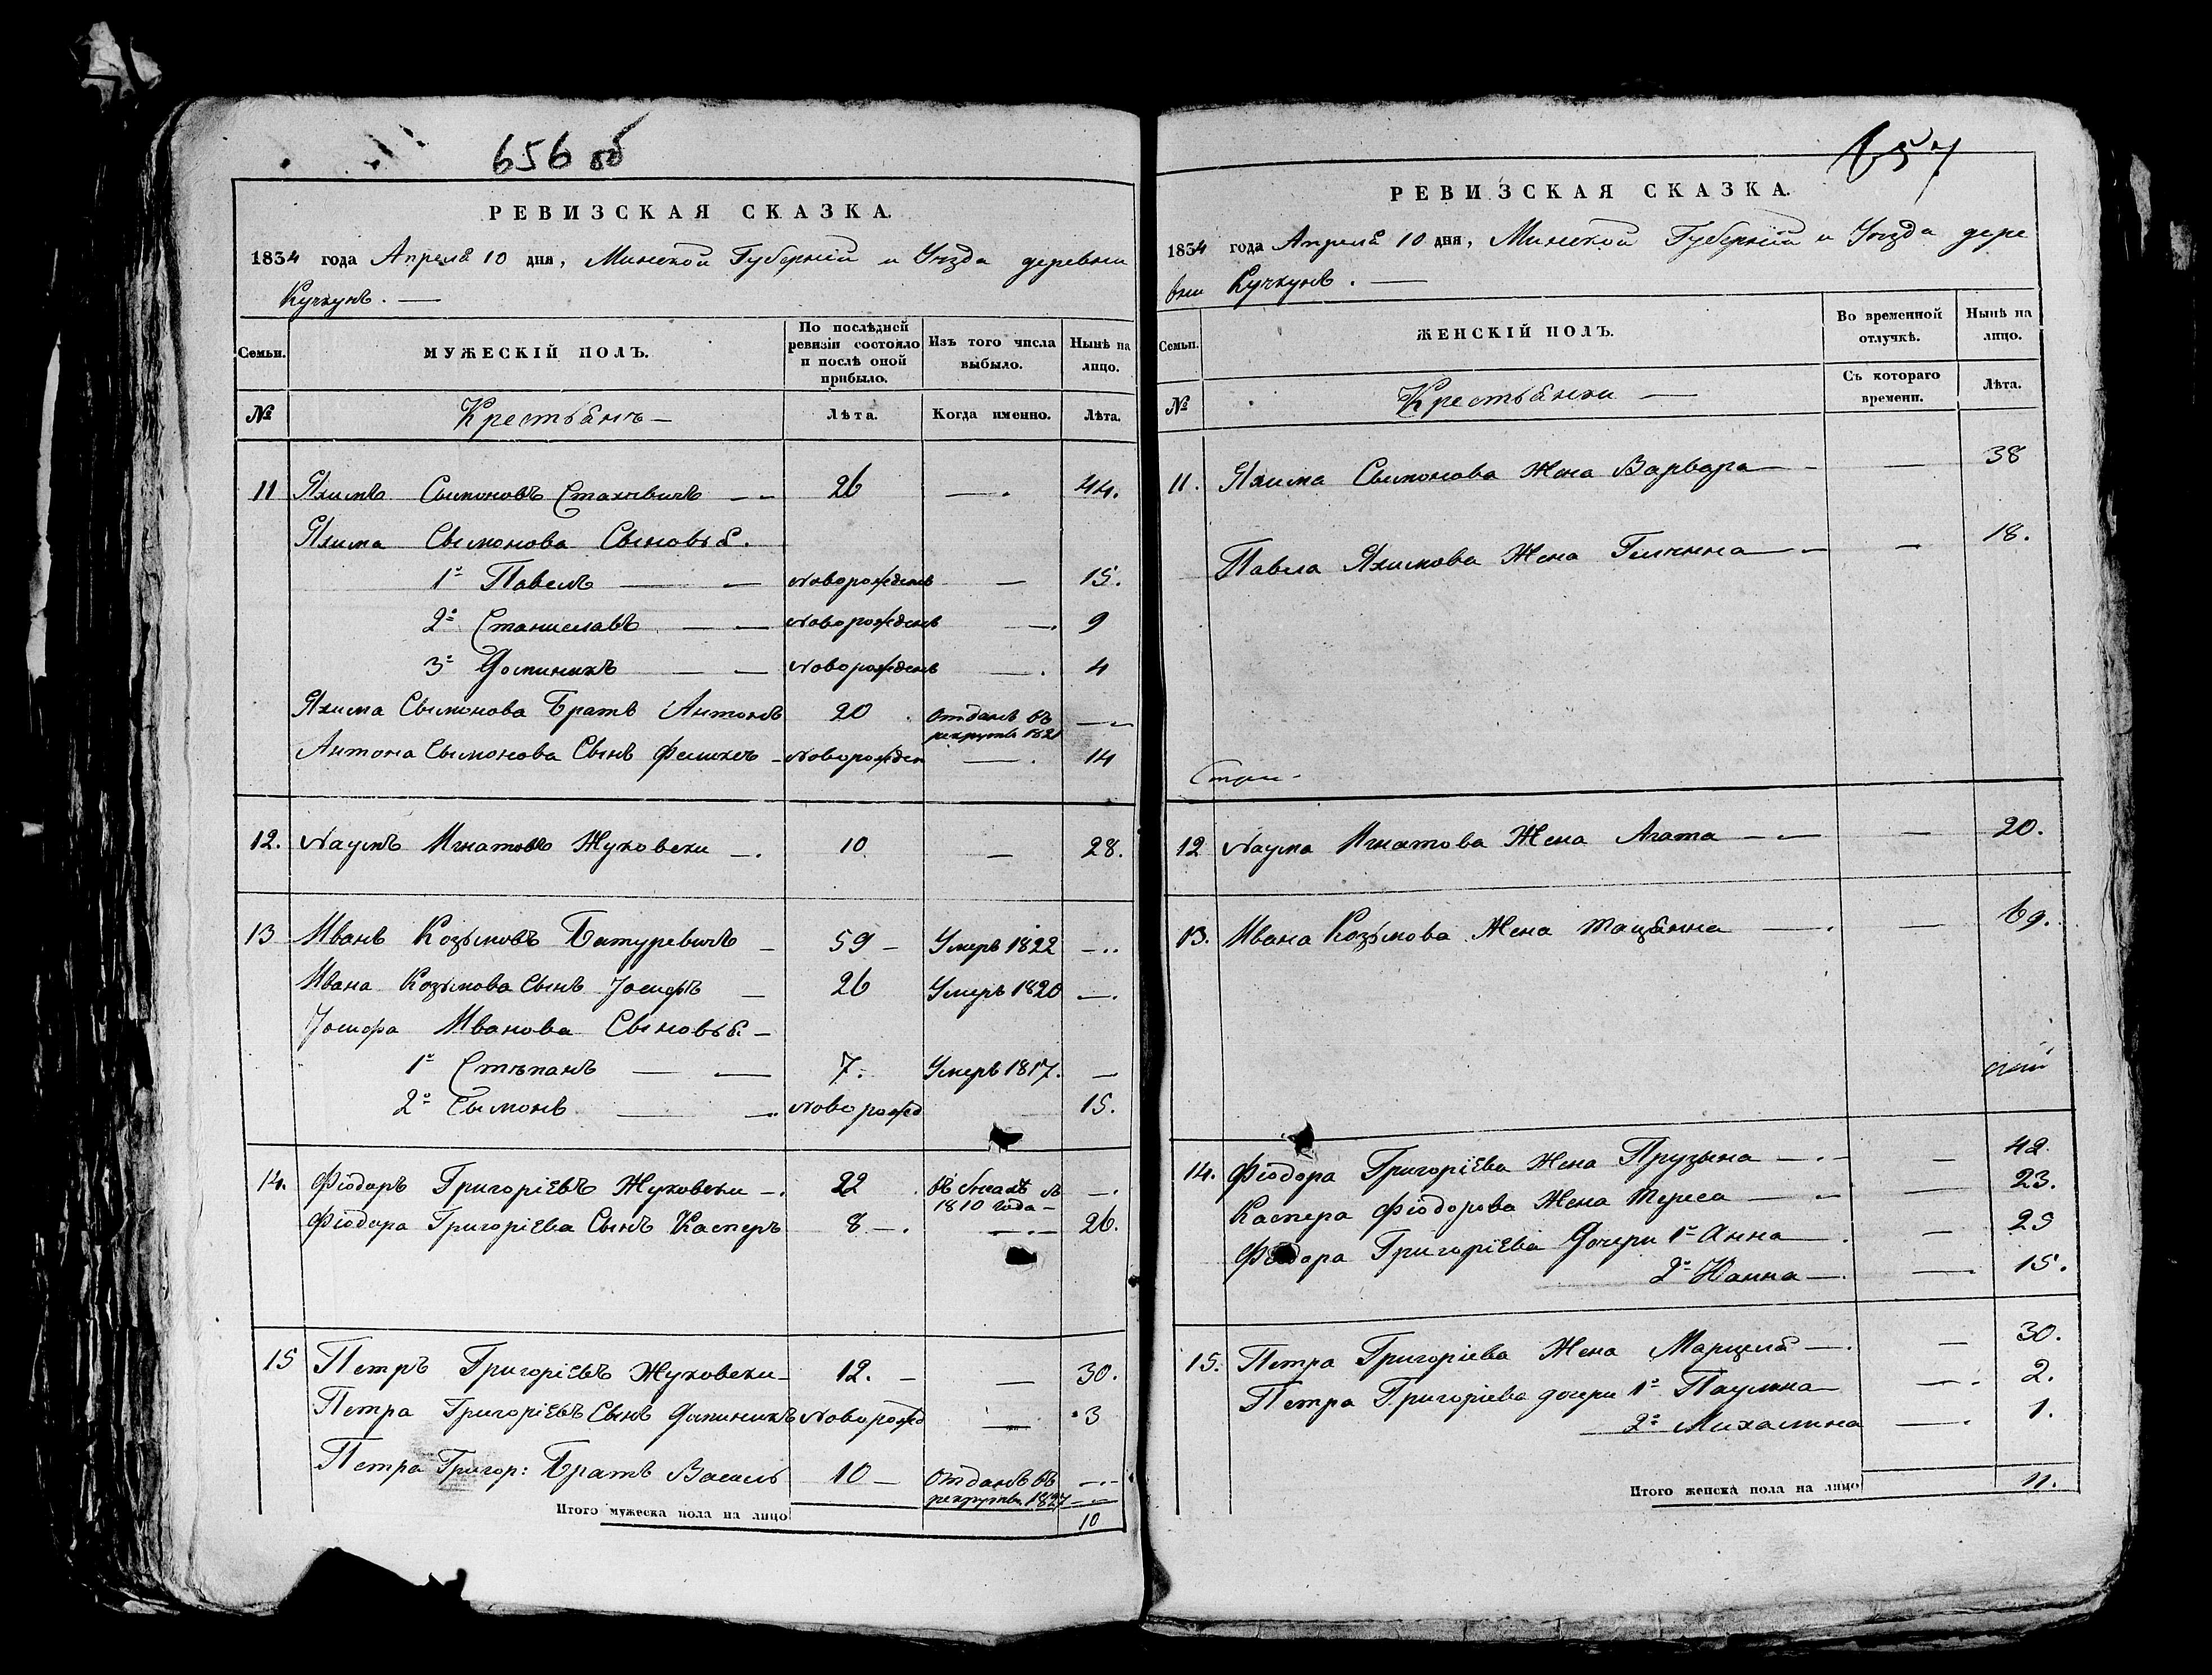 656 об
РЕВИЗСКАЯ СКАЗКА.
1834 года Апреля 10 дня, Минской Губерніи и Уезда деревни
Кучкунъ. —
Семьи.
МУЖЕСКІЙ ПОЛЪ.
По послѣдней ревизіи состояло и послѣ оной прибыло.
Изъ того числа выбыло.
Нынѣ на лицо.
№
Крестьянъ —
Лѣта.
Когда именно.
Лѣта.
11 Яхимъ Сымоновъ Стахевичъ — 26 — 44.
Яхима Сымонова Сыновья.
1й Павелъ — Новорожденъ — 15.
2й Станиславъ — Новорожденъ — 9
3й Доминикъ — Новорожденъ — 4
Яхима Сымонова Братъ Антонъ 20 отданъ въ рекруты 1821 —
Антона Сымонова Сынъ Феликсъ — Новорожден — 14
12. Наумъ Игнатовъ Жуковски — 10 — 28.
13 Иванъ Козьмовъ Батуревичъ — 59 — Умеръ 1822 —
Ивана Козьмова Сынъ Іосифъ — 26 Умеръ 1820 —
Іосифа Иванова Сыновья —
1й Стѣпанъ — 7. Умеръ 1817. —
2й Сымонъ —Новорожд 15.
14. Фіодоръ Григоріевъ Жуковски — 22 въ 1810 года —
Фіодора Григоріева Сынъ Касперъ 8 — 26.
15 Петръ Григоріевъ Жуковски — 12. — 30.
Петра Григоріевъ Сынъ Доминикъ Новорожд — 3
Петра Григор: Братъ Василь 10 — отданъ въ рекруты 1827 —
Итого мужеска пола на лицо 10
657
РЕВИЗСКАЯ СКАЗКА.
1834 года Апреля 10 дня, Минской Губерніи и Уезда дере
вни Кучкунъ. —
Семьи.
ЖЕНСКІЙ ПОЛЪ.
Во временной отлучкѣ.
Нынѣ на лицо.
№
Крестьянки —
Съ котораго времени.
Лѣта.
11. Яхима Сымонова Жена Варвара — 38
Павла Яхимова Жена — 18.
12 Наума Игнатова Жена Агата — 20.
13. Ивана Козьмова Жена Тацянна — 69.
14. Фіодора Григоріева Жена Прузына — 42.
Каспера Фіодорова Жена Тереса — 23.
Фіодора Григоріева Дочери 1я Анна — 25
2я Юанна — 15.
15. Петра Григоріева Жена Марцеля — 30.
Петра Григоріева дочери 1я Паулина — 2.
2я Михалина — 1.
Итого женска пола на лицо 11.